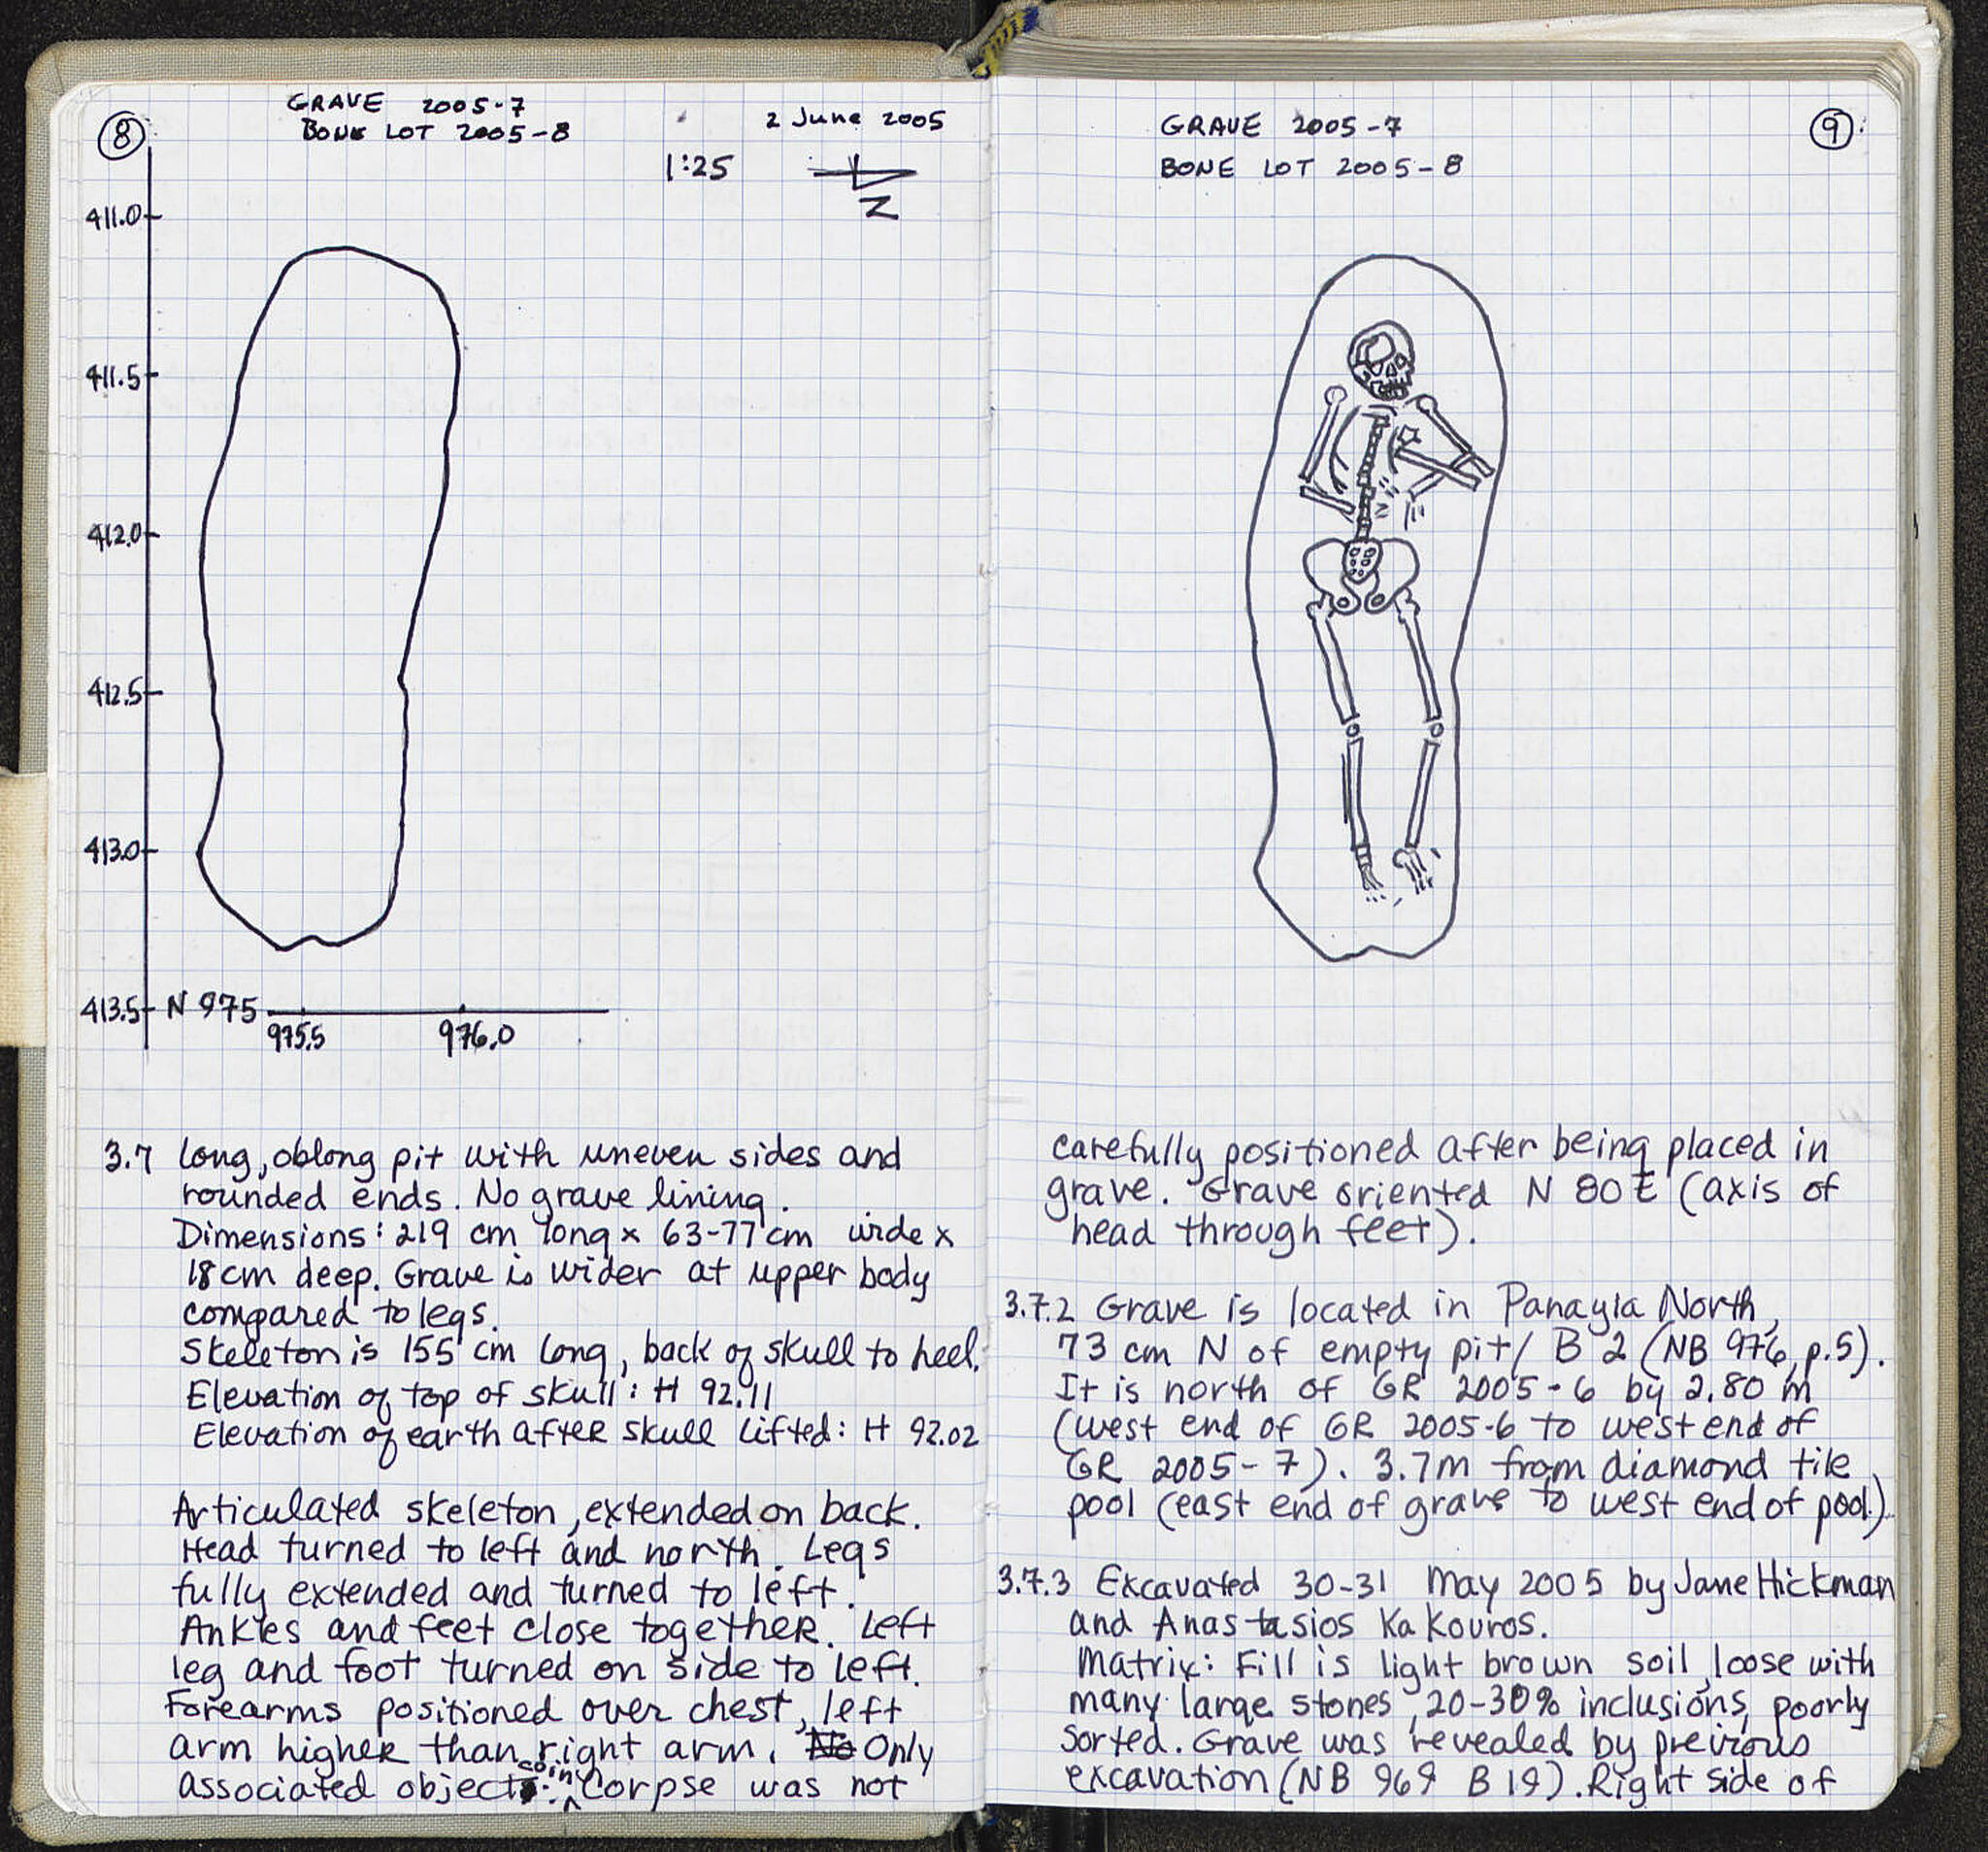 8
GRAVE 2005-7
BONE LOT 2005-8
2 June 2005
1:25
N
411.0
411.5
412.0
412.5
413.0
413.5 N 975
975.5 976.0
3.7 long, oblong pit with uneven sides and
rounded ends. No grave lining.
Dimensions: 219 cm long x 63-77 cm wide x
18 cm deep. Grave is wider at upper body
compared to legs.
Skeleton is 155 cm long, back of skull to heel.
Elevation of top of skull: H 92.11
Elevation of earth after skull lifted: H 92.02
Articulated skeleton, extended on back.
Head turned to left and north. Legs
fully extended and turned to left.
Ankles and feet close together. Left
leg and foot turned on side to left.
Forearms positioned over chest, left
arm higher than right arm. No Only
associated object: coin. Corpse was not
GRAVE 2005-7
BONE LOT 2005-8
9
carefully positioned after being placed in
grave. Grave oriented N 80 E (axis of
head through feet).
3.7.2 Grave is located in Panayia North,
73 cm N of empty pit/ B 2 (NB 976, p.5).
It is north of GR 2005-6 by 2.80 m
(west end of GR 2005-6 to west end of
GR 2005-7). 3.7m from diamond tile
pool (east end of grave to west end of pool).
3.7.3 Excavated 30-31 May 2005 by Jane Hickman
and Anastasios Kakouros.
Matrix: Fill is light brown soil, loose with
many large stones, 20-30% inclusions, poorly
sorted. Grave was revealed by previous
excavation (NB 969 B 19). Right side of